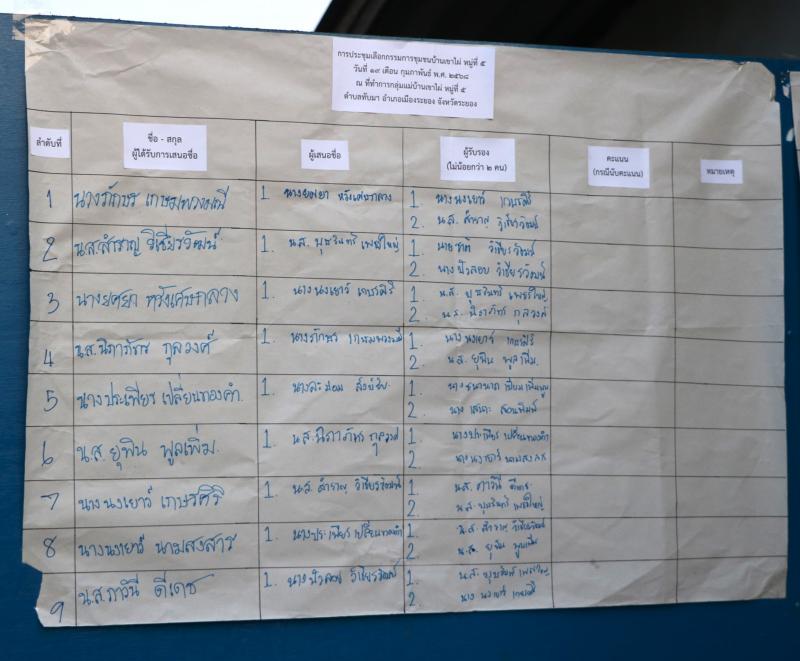 การประชุมเลือกกรรมการชุมชนบ้านเขาไผ่ หมู่ที่ ๕
วันที่ ๑๙ เดือน กุมภาพันธ์ พ.ศ. ๒๕๖๘
ณ ที่ทำการกลุ่มแม่บ้านเขาไผ่ หมู่ที่ ๕
ตำบลทับมา อำเภอเมืองระยอง จังหวัดระยอง
ลำดับที่
ชื่อ - สกุล
ผู้ได้รับการเสนอชื่อ
ผู้เสนอชื่อ
ผู้รับรอง
(ไม่น้อยกว่า ๒ คน)
คะแนน
(กรณีนับคะแนน)
หมายเหตุ
1 นางรักษร 1. 1. นางนงเยาว์ เกษรศิริ
2. น.ส. สำราญ วิเชียรวัฒน์
2 น.ส.สำราญ วิเชียรวัฒน์ 1. น.ส. 1. วิเชียรวัฒน์
2. นางบัวลอย วิเชียรวัฒน์
3 1. นางนงเยาว์ เกษรศิริ 1. น.ส.
2. น.ส. นิภาภัทร กุลวงศ์
4 น.ส.นิภาภัทร กุลวงศ์ 1. นางรักษร 1. นางนงเยาว์ เกษรศิริ
2. น.ส. ยุพิน พูลเพิ่ม
5 นางประเทียร เปลี่ยนทองคำ 1. 1.
2.
6 น.ส. ยุพิน พูลเพิ่ม 1. น.ส.นิภาภัทร กุลวงศ์ 1. นางประเทียร เปลี่ยนทองคำ
2. นางนงเยาว์ นามสงสาร
7 นางนงเยาว์ เกษรศิริ 1. น.ส. สำราญ วิเชียรวัฒน์ 1. น.ส. ภาวินี ดีเดช
2. น.ส.
8 นางนงเยาว์ นามสงสาร 1. นางประเทียร เปลี่ยนทองคำ 1. น.ส. สำราญ วิเชียรวัฒน์
2. น.ส. ยุพิน พูลเพิ่ม
9 น.ส.ภาวินี ดีเดช 1. นางบัวลอย วิเชียรวัฒน์ 1. น.ส.
2. นาง นงเยาว์ เกษรศิริ